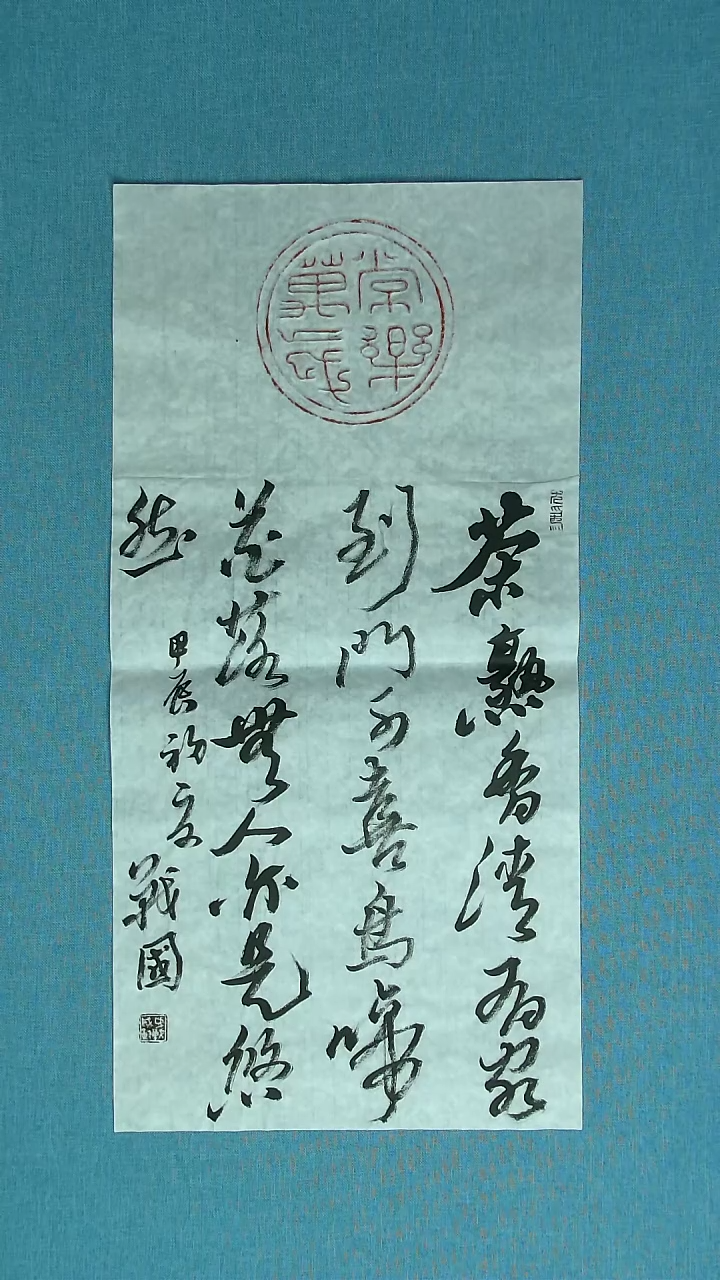 常樂
萬歲
茶熟香清有客
到門可喜鳥啼
花落無人亦是悠
然
甲辰初夏戰國